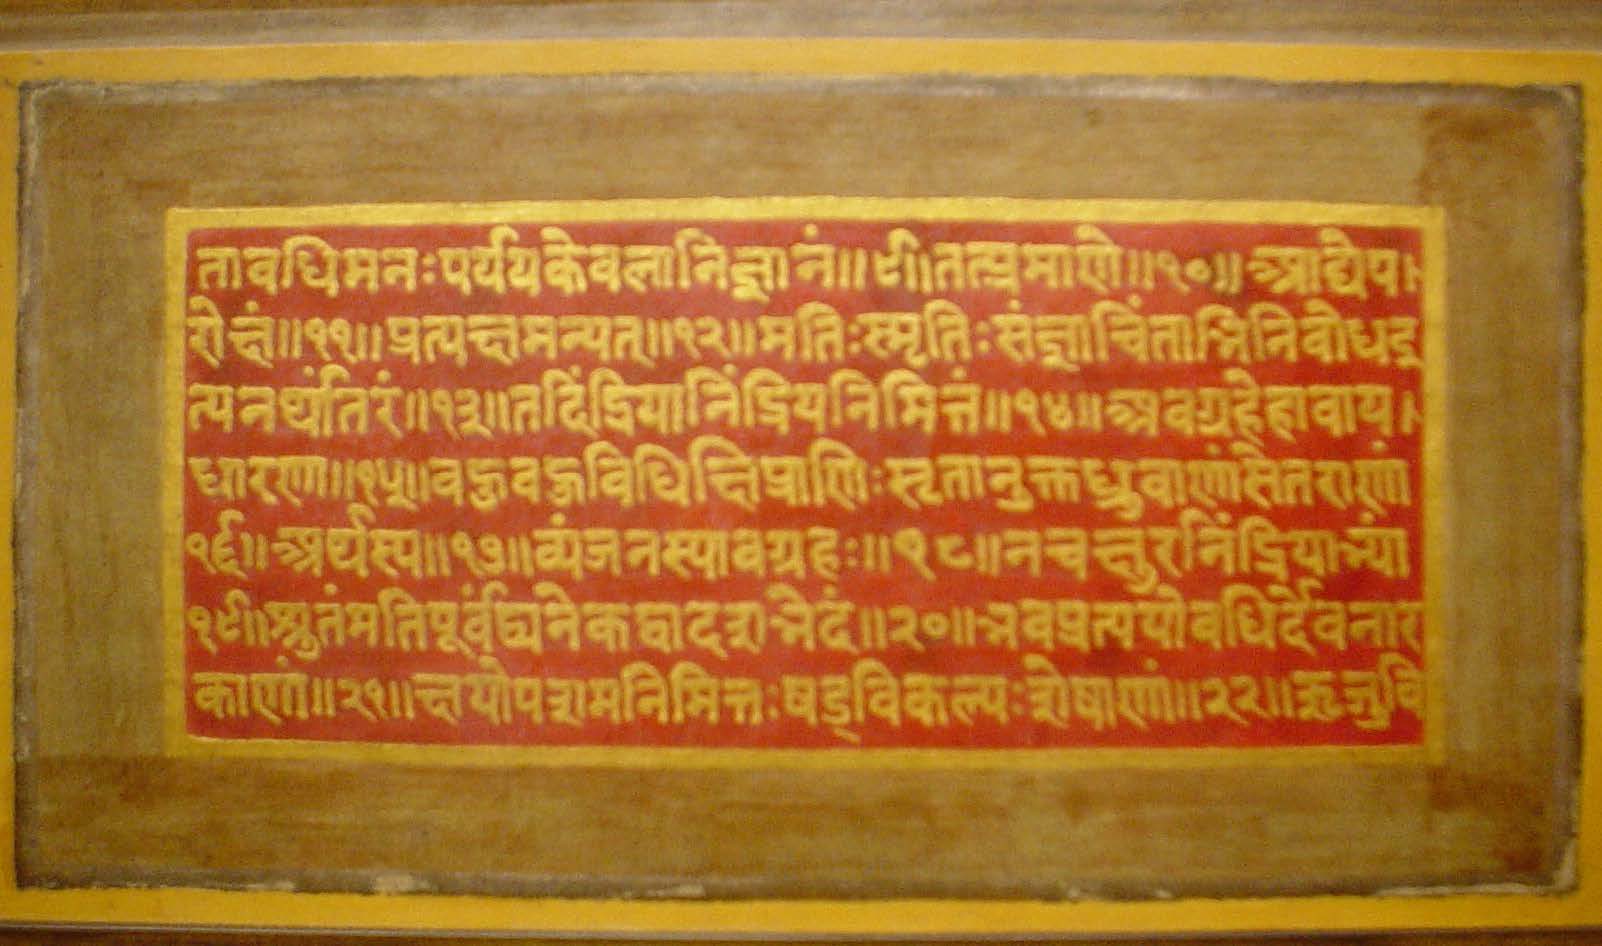 तावधिमनःपर्ययकेवलानिज्ञानं॥९॥तत्प्रमाणे॥१०॥आद्येप
रोक्षं॥११॥प्रत्यक्षमन्यत्॥१२॥मतिःस्मृतिःसंज्ञाचिंताभिनिबोधइ
त्यनर्थांतरं॥१३॥तदिंद्रियानिंद्रियनिमित्तं॥१४॥अवग्रहेहावाय
धारणा॥१५॥बहुबहुविधिक्षिप्राणिःसृतानुक्तध्रुवाणांसेतराणां
१६॥अर्थस्य॥१७॥व्यंजनस्यावग्रहः॥१८॥नचक्षुरनिंद्रियाभ्यां
१९॥श्रुतंमतिपूर्वंद्व्यनेकद्वादशभेदं॥२०॥भवप्रत्ययोवधिर्देवनार
काणां॥२१॥क्षयोपशमनिमित्तःषड्विकल्पःशेषाणां॥२२॥ऋजुवि